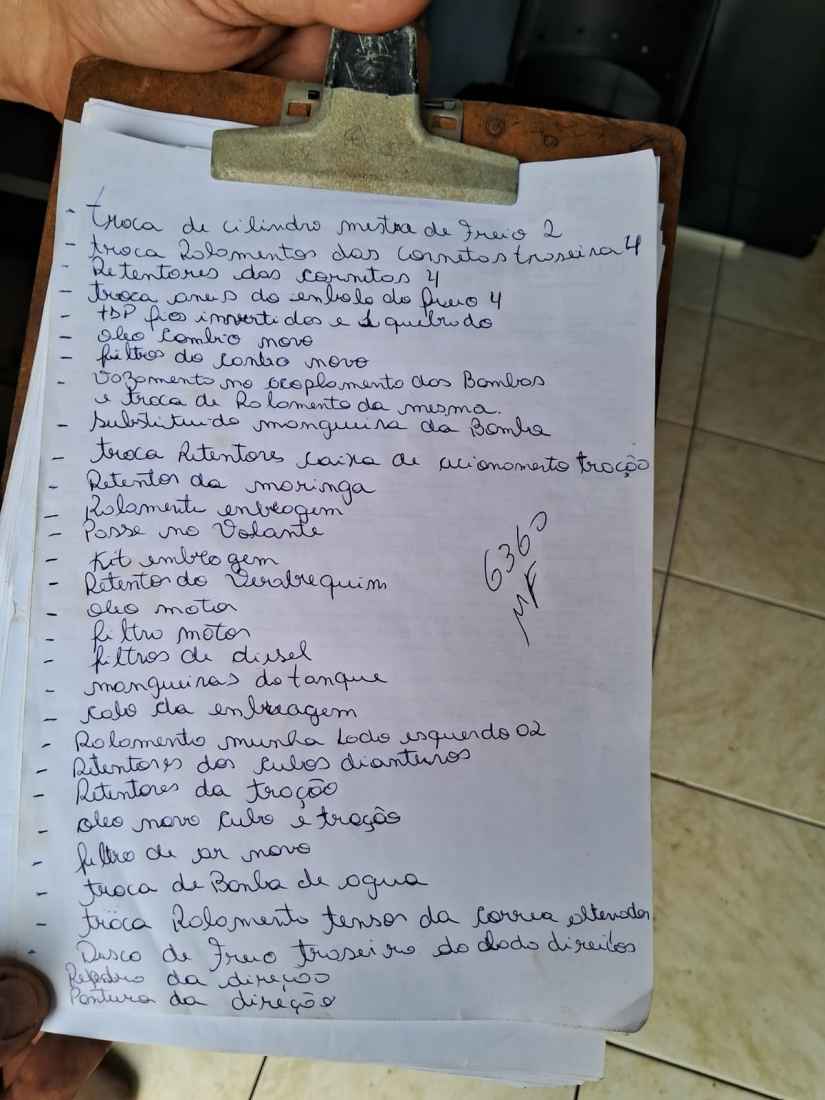 - troca de cilindro mestra de Freio 2
- troca Rolamentos das cornetas traseira 4
- Retentores das cornetas 4
- troca aneis do embolo do freio 4
- TDP fios invertidos e 1 quebrado
- oleo Cambio novo
- filtros do canbio novo
- Vazamento no acoplamento das Bombas
e troca de Rolamento da mesma.
- Substituido mangueira da Bomba
- troca Retentores caixa de acionamento tração
- Retentor da moringa
- Rolamento enbreagem
- Passe no Volante
- Kit embreagem
- Retentor do Verabrequim
- oleo motor
- filtro motor
- filtros de diesel
- mangueiras do tanque
- cabo da enbreagem
- Rolamento munha Lado esquerdo 02
- Retentores dos cubos dianteiros
- Retentores da tração
- oleo novo cubo e tração
- filtro de ar novo
- troca de Bonba de agua
- troca Rolamento tensor da correa alternador
- Disco de Freio traseiro do lado direitos
da direção
Pontura da direção
6360
MF